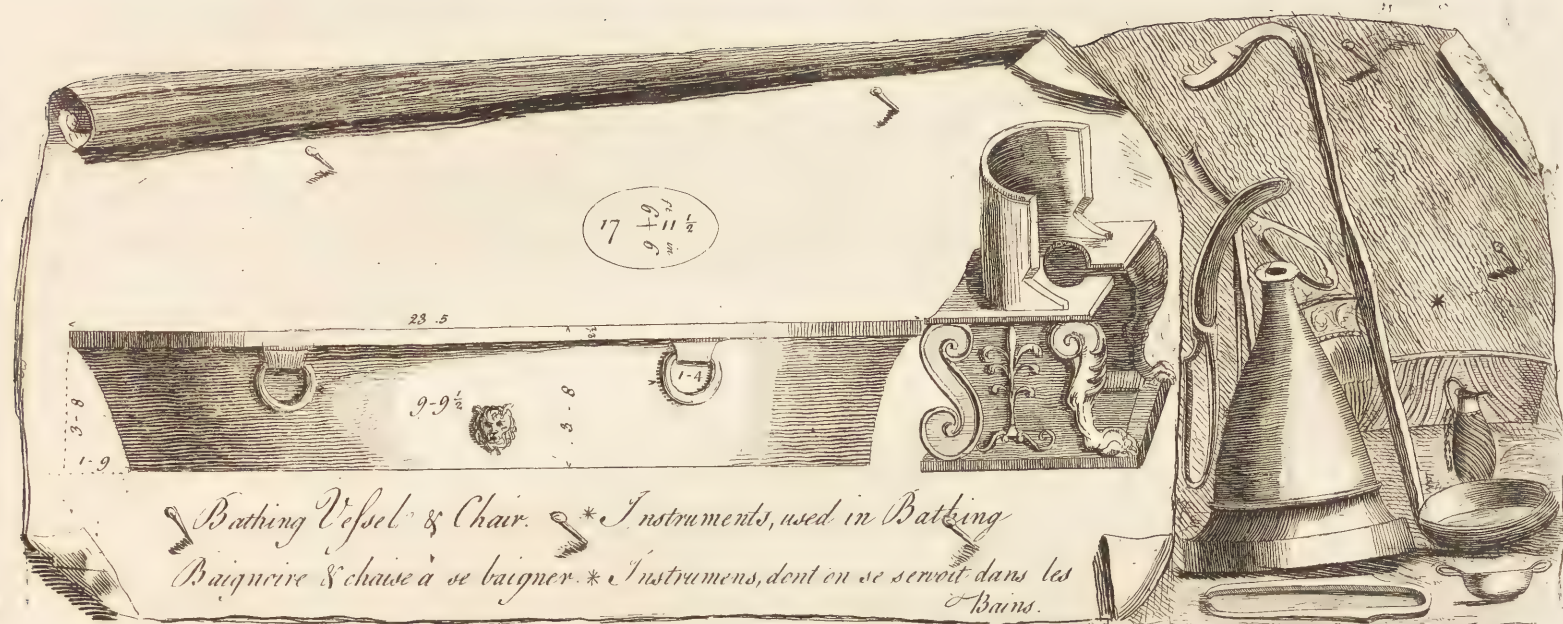 17 + 11 ½
23 .5
1-4
9-9½
3-8
3-8
1-9
Bathing Veſsel & Chair. * Instruments, used in Bathing
Baignoire & chaise à se baigner. * Instrumens, dont on se servoit dans les
Bains.